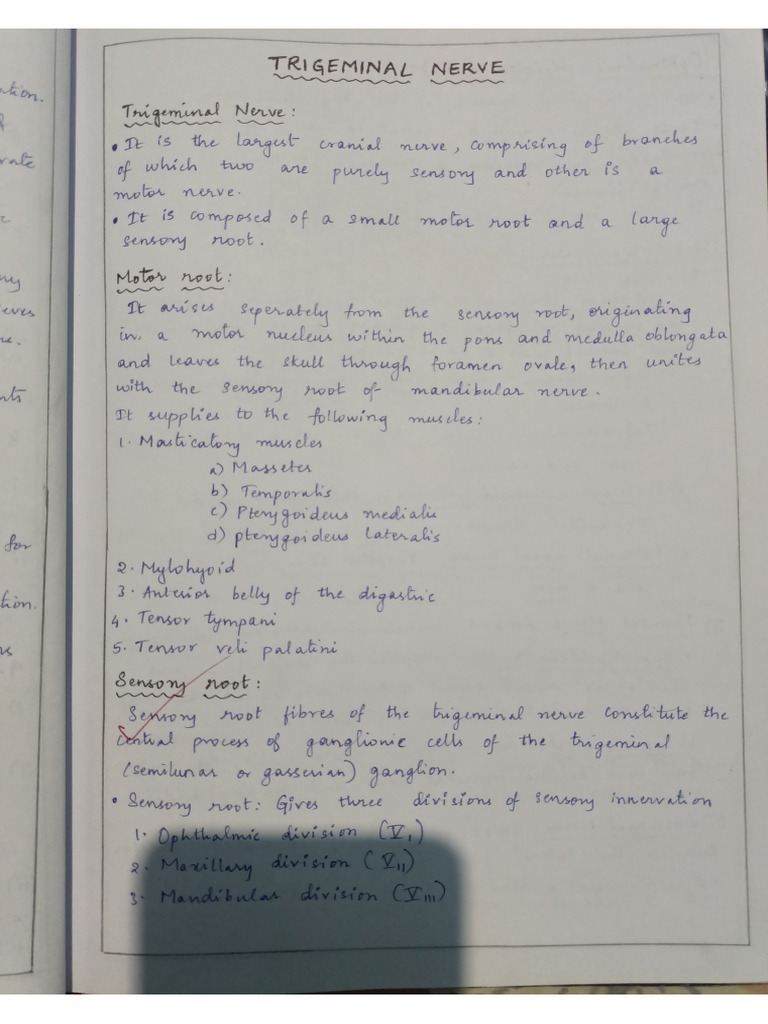 TRIGEMINAL NERVE
Trigeminal Nerve:
• It is the largest cranial nerve, comprising of branches
of which two are purely sensory and other is a
motor nerve.
• It is composed of a small motor root and a large
sensory root.
Motor root:
It arises seperately from the sensory root, originating
in a motor nucleus within the pons and medulla oblongata
and leaves the skull through foramen ovale, then unites
with the sensory root of mandibular nerve.
It supplies to the following muscles:
1. Masticatory muscles
a) Masseter
b) Temporalis
c) Pterygoideus medialis
d) pterygoideus lateralis
2. Mylohyoid
3. Anterior belly of the digastric
4. Tensor tympani
5. Tensor veli palatini
Sensory root:
Sensory root fibres of the trigeminal nerve constitute the
central process of ganglionic cells of the trigeminal
(semilunar or gasserian) ganglion.
• Sensory root: Gives three divisions of sensory innervation
1. Ophthalmic division (V I)
2. Maxillary division (V II)
3. Mandibular division (V III)